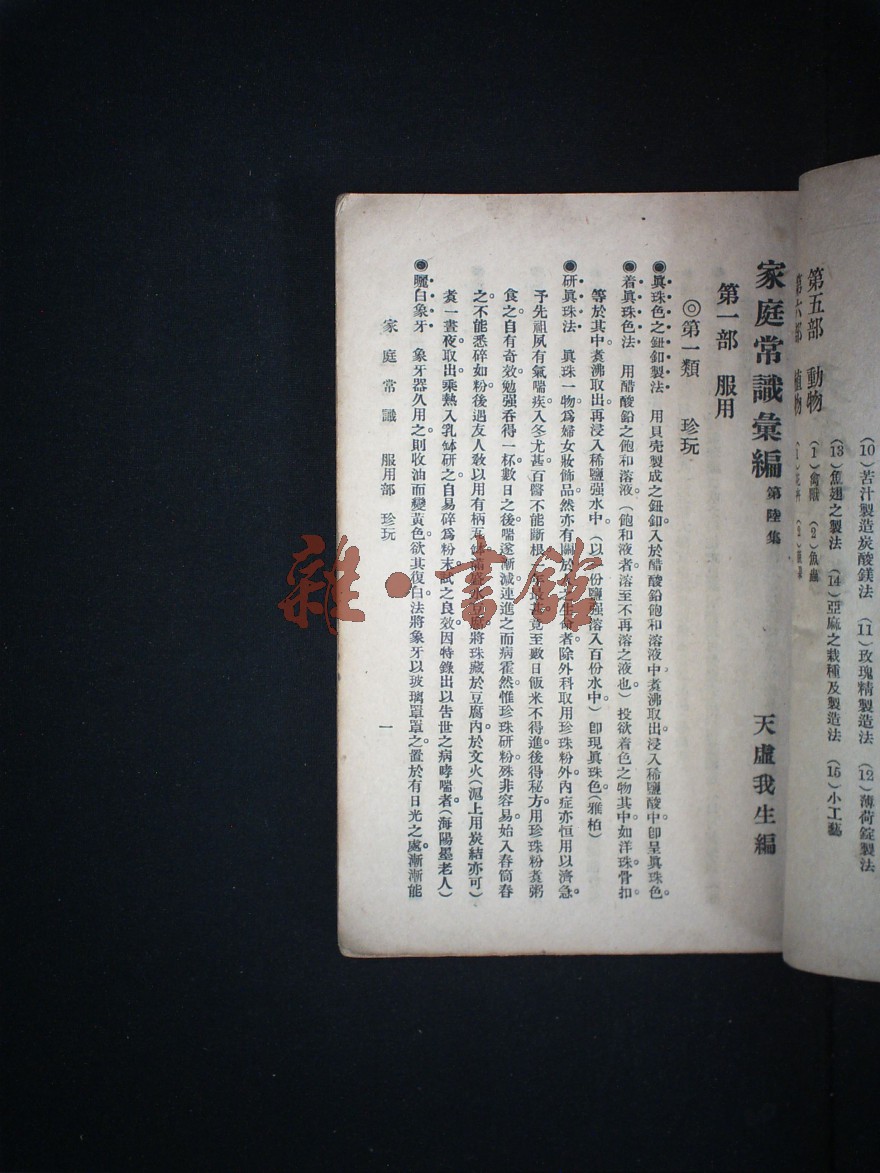 (10)苦汁製造炭酸鎂法 (11)玫瑰精製造法 (12)薄荷錠製法
(13)魚翅之製法 (14)亞麻之栽種及製造法 (15)小工藝
第五部 動物
(1)禽獸 (2)魚蟲
第六部 植物
家庭常識彙編 第陸集 天虛我生編
第一部 服用
◎第一類 珍玩
●眞珠色之鈕釦製法 用貝壳製成之鈕釦入於醋酸鉛飽和溶液中煮沸取出浸入稀鹽酸中卽呈眞珠色。
●着眞珠色法 用醋酸鉛之飽和溶液(飽和液者溶至不再溶之液也)投欲着色之物其中如洋珠骨扣。
等於其中煮沸取出再浸入稀鹽强水中(以一份鹽强溶入百份水中)卽現眞珠色(雅柏)
●研眞珠法 眞珠一物爲婦女妝飾品然亦有關於人之生命者除外科取用珍珠粉外內症亦恒用以濟急。
予先祖夙有氣喘疾入冬尤甚百醫不能斷根一年竟至數日飯米不得進後得秘方用珍珠粉煮粥
食之自有奇效勉强呑得一杯數日之後喘遂漸減連進之而病霍然惟珍珠研粉殊非容易始入舂筒舂
之不能悉碎如粉後遇友人敎以用有柄瓦罐滿盛水豆腐將珠藏於豆腐內於文火(滬上用炭結亦可)
煮一晝夜取出乘熱入乳鉢研之自易碎爲粉末試之良效因特錄出以吿世之病哮喘者(海陽墨老人)
●曬白象牙 象牙器久用之則收油而變黃色欲其復白法將象牙以玻璃罩罩之置於有日光之處漸漸能
家庭常識 服用部 珍玩 一
雜·書館